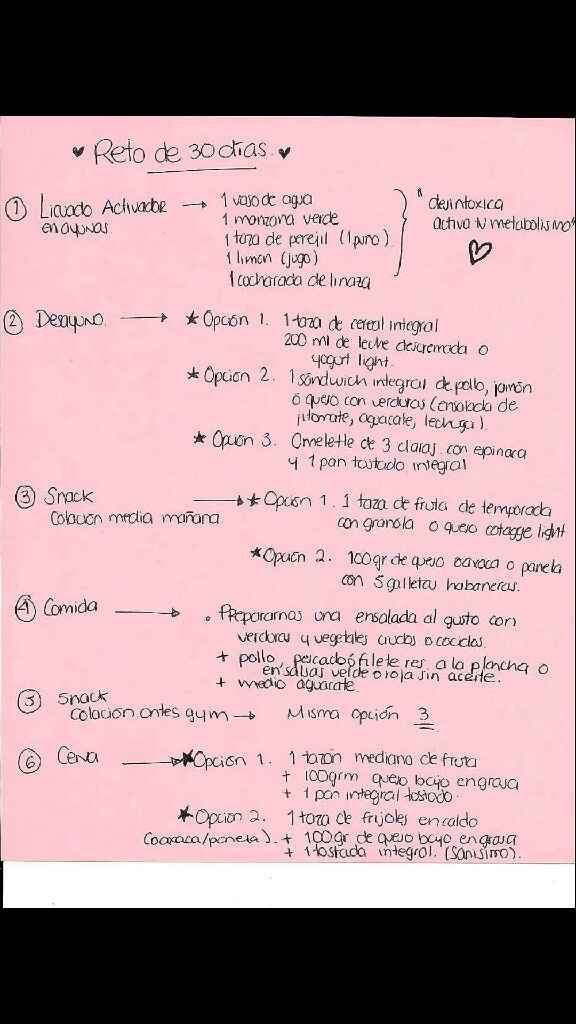 ♥ Reto de 30 días. ♥
① Licuado Activador → 1 vaso de agua
en ayunas
1 manzana verde
1 taza de perejil (1 puño)
1 limón (jugo)
1 cucharada de linaza
" desintoxica
activa tu metabolismo"
② Desayuno. → ★ Opción 1. 1 taza de cereal integral
200 ml de leche descremada o
yogurt light.
★ Opción 2. 1 sándwich integral de pollo, jamón
ó queso con verduras (ensalada de
jitomate, aguacate, lechuga).
★ Opción 3. Omelette de 3 claras con espinaca
y 1 pan tostado integral
③ Snack → ★ Opción 1. 1 taza de fruta de temporada
Colación media mañana
con granola o queso cotagge light
★ Opción 2. 100gr de queso oaxaca o panela
con 5 galletas habaneras.
④ Comida → . Prepararnos una ensalada al gusto con
verduras y vegetales crudos o cocidos.
+ pollo, pescado ó filete res. a la plancha o
en salsas verde o roja sin aceite.
+ medio aguacate.
③ Snack
Colación antes gym → Misma opción 3
⑥ Cena → ★ Opción 1. 1 tazón mediano de fruta
+ 100grm queso bajo en grasa
+ 1 pan integral tostado.
★ Opción 2. 1 taza de frijoles en caldo
(oaxaca/panela). + 100gr de queso bajo en grasa
+ 1 tostada integral. (Sanísimo).